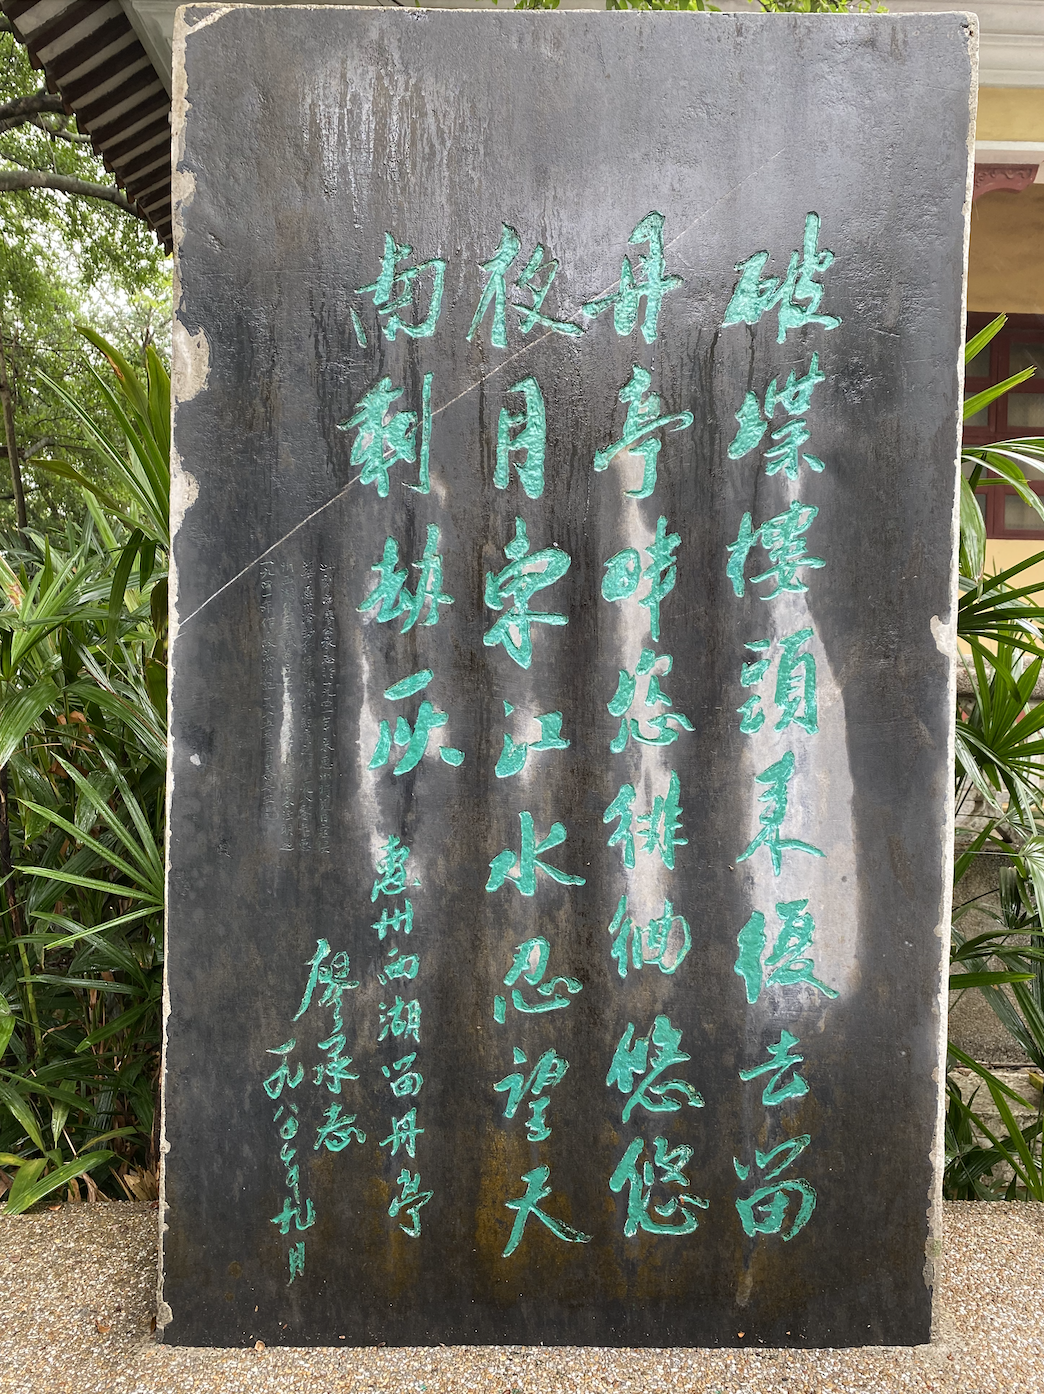 破堞樓頭来復去留
丹亭畔恣徘徊悠悠
夜月東江水忍望天
南剩劫灰 惠州西湖留丹亭
廖承志
一九八〇年九月